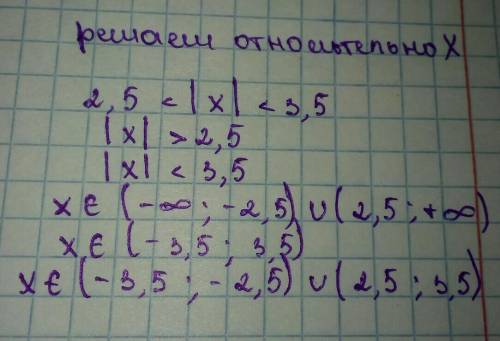 решаем относительно X
2,5 < |x| < 3,5
|x| > 2,5
|x| < 3,5
x ∈ (-∞; -2,5) ∪ (2,5; +∞)
x ∈ (-3,5; 3,5)
x ∈ (-3,5; -2,5) ∪ (2,5; 3,5)